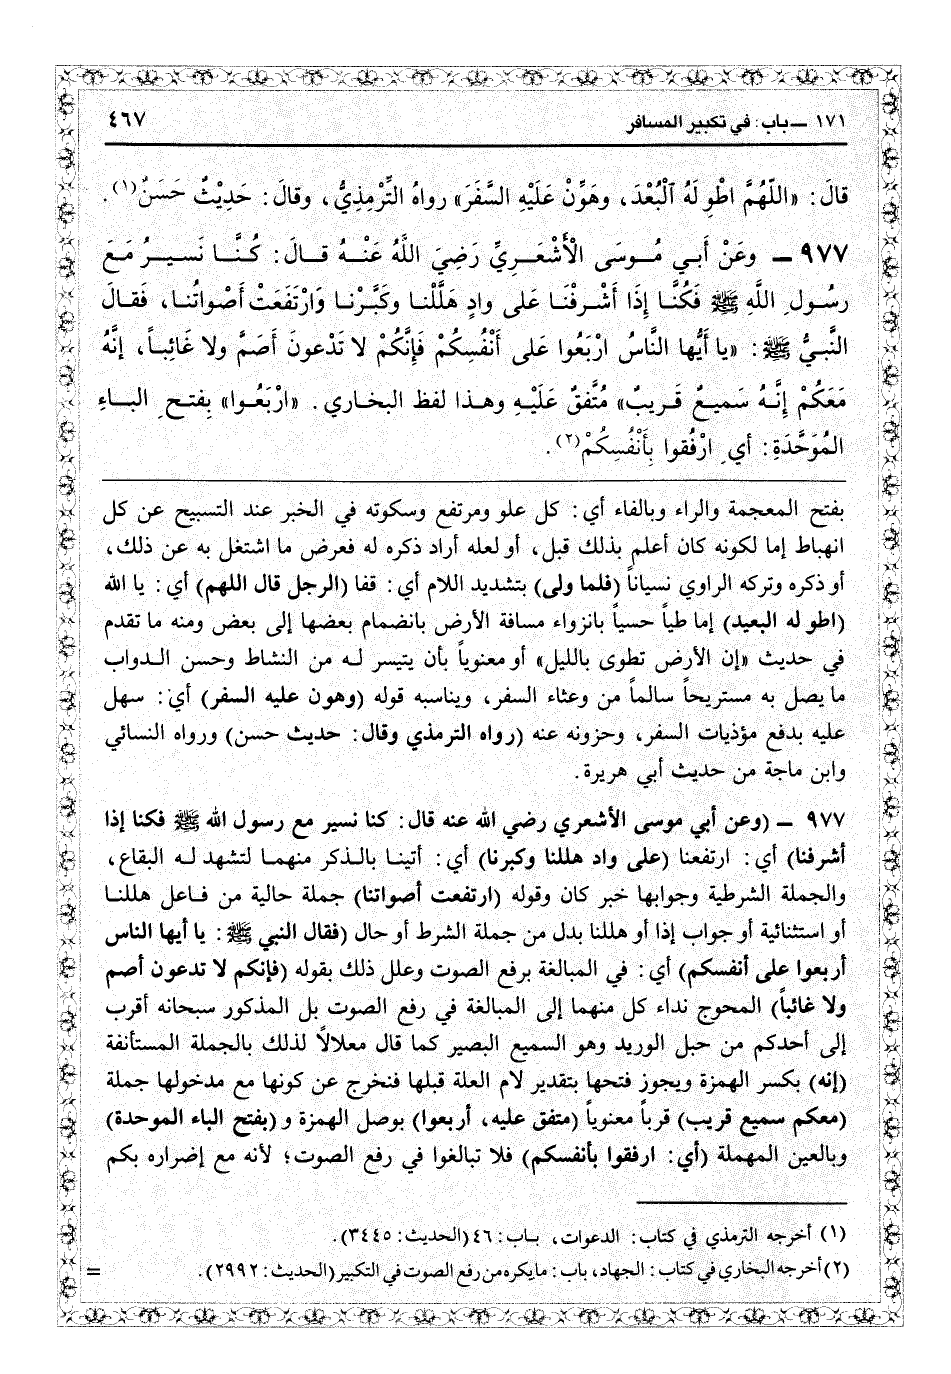 ١٧١ ـ باب: في تكبير المسافر
٤٦٧
قالَ: «اللّهُمَّ اطْوِ لَهُ الْبُعْدَ، وهَوِّنْ عَلَيْهِ السَّفَرَ» رواهُ التِّرْمِذِيُّ، وقالَ: حَدِيْثٌ حَسَنٌ(١).
٩٧٧ ـ وعَنْ أَبي مُوسَى الأَشْعَرِيِّ رَضِيَ اللَّهُ عَنْهُ قالَ: كُنَّا نَسيرُ مَعَ
رسُولِ اللَّهِ ﷺ فَكُنَّا إِذَا أَشْرفْنَا عَلى وادٍ هَلَّلْنا وكَبَّرْنا وَارْتَفَعَتْ أَصْواتُنا، فَقالَ
النَّبيُّ ﷺ: «يا أَيُّها النَّاسُ ارْبَعُوا عَلى أَنْفُسِكُمْ فَإِنَّكُمْ لا تَدْعونَ أَصَمَّ ولا غَائِباً، إنَّهُ
مَعَكُمْ إِنَّهُ سَميعٌ قَريبٌ» مُتَّفَقٌ عَلَيْهِ وهَذا لفظ البخاري. «ارْبَعُوا» بِفتحِ الباءِ
المُوَحَّدَةِ: أي ِ ارْفُقوا بِأَنْفُسِكُمْ(٢).
بفتح المعجمة والراء وبالفاء أي: كل علو ومرتفع وسكوته في الخبر عند التسبيح عن كل
انهباط إما لكونه كان أعلم بذلك قبل، أو لعله أراد ذكره له فعرض ما اشتغل به عن ذلك،
أو ذكره وتركه الراوي نسياناً (فلما ولى) بتشديد اللام أي: قفا (الرجل قال اللهم) أي: يا الله
(اطو له البعيد) إما طياً حسياً بانزواء مسافة الأرض بانضمام بعضها إلى بعض ومنه ما تقدم
في حديث «إن الأرض تطوى بالليل» أو معنوياً بأن يتيسر له من النشاط وحسن الدواب
ما يصل به مستريحاً سالماً من وعثاء السفر، ويناسبه قوله (وهون عليه السفر) أي: سهل
عليه بدفع مؤذيات السفر، وحزونه عنه (رواه الترمذي وقال: حديث حسن) ورواه النسائي
وابن ماجة من حديث أبي هريرة.
٩٧٧ ـ (وعن أبي موسى الأشعري رضي الله عنه قال: كنا نسير مع رسول الله ﷺ فكنا إذا
أشرفنا) أي: ارتفعنا (على واد هللنا وكبرنا) أي: أتينا بالذكر منهما لتشهد له البقاع،
والجملة الشرطية وجوابها خبر كان وقوله (ارتفعت أصواتنا) جملة حالية من فاعل هللنا
أو استثنائية أو جواب إذا أو هللنا بدل من جملة الشرط أو حال (فقال النبي ﷺ: يا أيها الناس
أربعوا على أنفسكم) أي: في المبالغة برفع الصوت وعلل ذلك بقوله (فإنكم لا تدعون أصم
ولا غائباً) المحوج نداء كل منهما إلى المبالغة في رفع الصوت بل المذكور سبحانه أقرب
إلى أحدكم من حبل الوريد وهو السميع البصير كما قال معلالاً لذلك بالجملة المستأنفة
(إنه) بكسر الهمزة ويجوز فتحها بتقدير لام العلة قبلها فنخرج عن كونها مع مدخولها جملة
(معكم سميع قريب) قرباً معنوياً (متفق عليه، أربعوا) بوصل الهمزة و (بفتح الباء الموحدة)
وبالعين المهملة (أي: ارفقوا بأنفسكم) فلا تبالغوا في رفع الصوت؛ لأنه مع إضراره بكم
(١) أخرجه الترمذي في كتاب: الدعوات، باب: ٤٦ (الحديث: ٣٤٤٥).
(٢) أخرجه البخاري في كتاب: الجهاد، باب: ما يكره من رفع الصوت في التكبير (الحديث: ٢٩٩٢). =